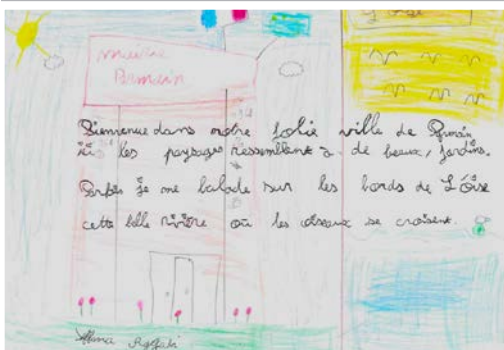 L'oise
mairie
Persan
Bienvenue dans notre Jolie ville de Persan
ici les paysages ressemblent à de beaux, jardins.
Parfois je me balade sur les bords de L'Oise
cette belle rivière où les oiseaux se croisent.